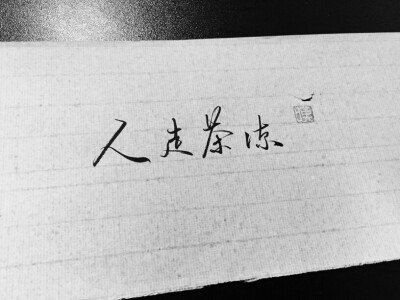 人走茶凉